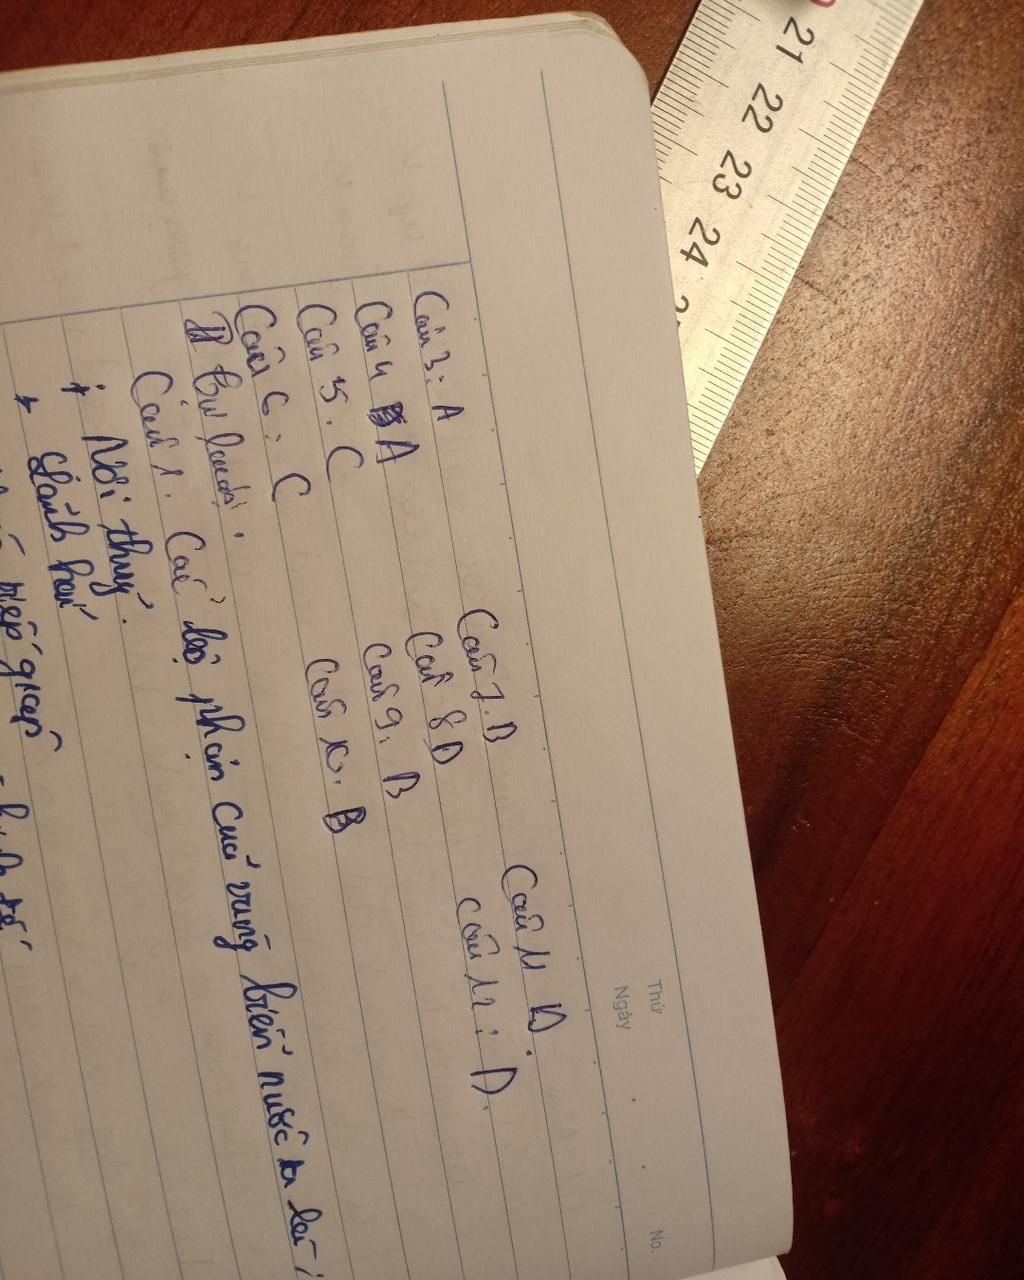 Thứ
Ngày
No.
Câu 3: A
Câu 4 A
Câu 5. C
Câu 6: C
Câu 7. B
Câu 8 D
Câu 9: B
Câu 10. B
Câu 11 D.
Câu 12: D.
II tự luận.
Câu 1. Các bộ phận của vùng biển nước ta là:
+ Nội thuỷ.
+ Lãnh hải
tiếp giáp
21 22 23 24